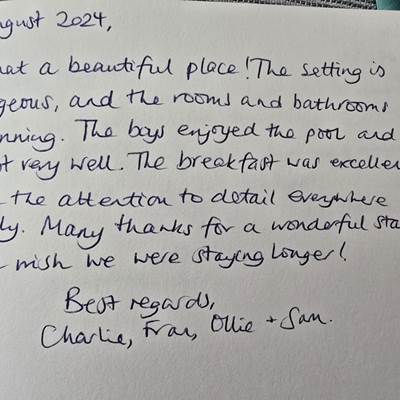 ugust 2024,
at a beautiful place! The setting is
geous, and the rooms and bathrooms
nning. The boys enjoyed the pool and
t very well. The breakfast was excellen
the attention to detail everywhere
ly. Many thanks for a wonderful sta
wish we were staying longer!
Best regards,
Charlie, Fran, Ollie + Sam.